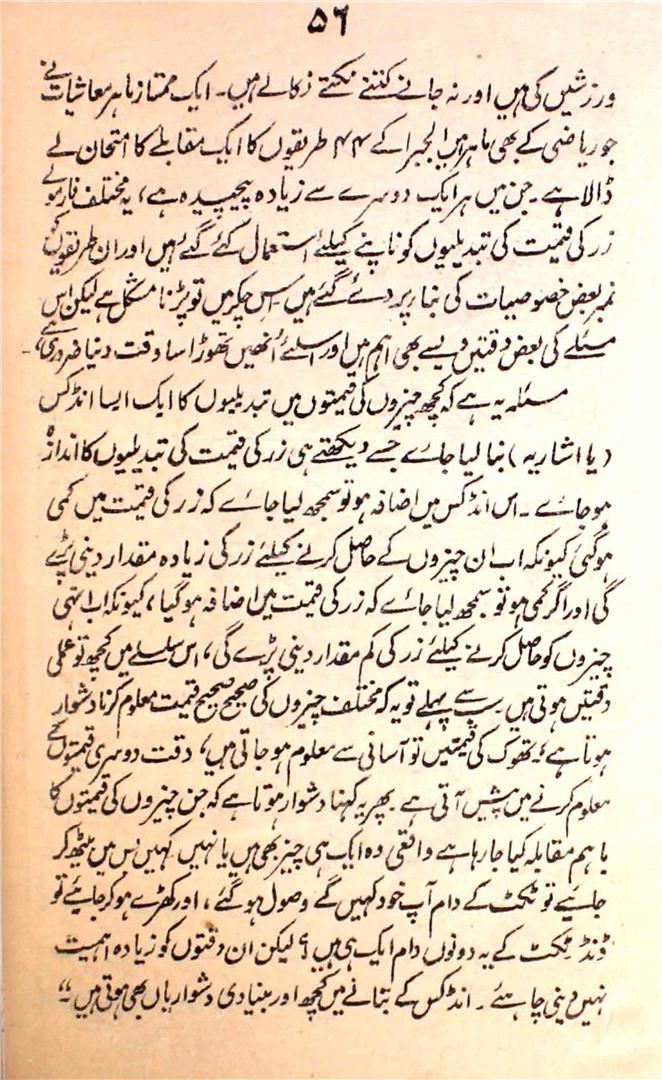 ۵۶
ورزشیں کی ہیں اور نہ جانے کتنے نکتے نکالے ہیں۔ ایک ممتاز ماہر معاشیات نے
جو ریاضی کے بھی ماہر ہیں الجبرا کے ۴۴ طریقوں کا ایک مقابلے کا امتحان لے
ڈالا ہے۔ جن میں ہر ایک دوسرے سے زیادہ پیچیدہ ہے، یہ مختلف فارمولے
زر کی قیمت کی تبدیلیوں کو ناپنے کیلئے استعمال کئے گئے ہیں اور ان طریقوں کو
نمبر بعض خصوصیات کی بنا پر دئے گئے ہیں۔ اس چکر میں تو پڑنا مشکل ہے لیکن اس
مسئلے کی بعض دقتیں ویسے بھی اہم ہیں اور اسلئے اُنھیں تھوڑا سا وقت دینا ضروری ہے۔
مسئلہ یہ ہے کہ کچھ چیزوں کی قیمتوں میں تبدیلیوں کا ایک ایسا انڈکس
(یا اشاریہ) بنا لیا جائے جسے دیکھتے ہی زر کی قیمت کی تبدیلیوں کا اندازہ
ہو جائے۔ اس انڈکس میں اضافہ ہو تو سمجھ لیا جائے کہ زر کی قیمت میں کمی
ہوگئی کیونکہ اب ان چیزوں کے حاصل کرنے کیلئے زر کی زیادہ مقدار دینی پڑے
گی اور اگر کمی ہو تو سمجھ لیا جائے کہ زر کی قیمت میں اضافہ ہو گیا، کیونکہ اب انہی
چیزوں کو حاصل کرنے کیلئے زر کی کم مقدار دینی پڑے گی، اس سلسلے میں کچھ تو عملی
دقتیں ہوتی ہیں۔ سب سے پہلے تو یہ کہ مختلف چیزوں کی صحیح صحیح قیمت معلوم کرنا دشوار
ہوتا ہے؛ تھوک کی قیمتیں تو آسانی سے معلوم ہو جاتی ہیں، دقت دوسری قیمتوں کے
معلوم کرنے میں پیش آتی ہے۔ پھر یہ کہنا دشوار ہوتا ہے کہ جن چیزوں کی قیمتوں کا
باہم مقابلہ کیا جا رہا ہے واقعی وہ ایک ہی چیز بھی ہیں یا نہیں کہیں بس میں بیٹھ کر
جائیے تو ٹکٹ کے دام آپ خود کہیں گے وصول ہو گئے، اور کھڑے ہو کر جائیے تو
ڈنڈ ٹکٹ کے یہ دونوں دام ایک ہی ہیں؟ لیکن ان دقتوں کو زیادہ اہمیت
نہیں دینی چاہئے۔ انڈکس کے بنانے میں کچھ اور بنیادی دشواریاں بھی ہوتی ہیں۔“